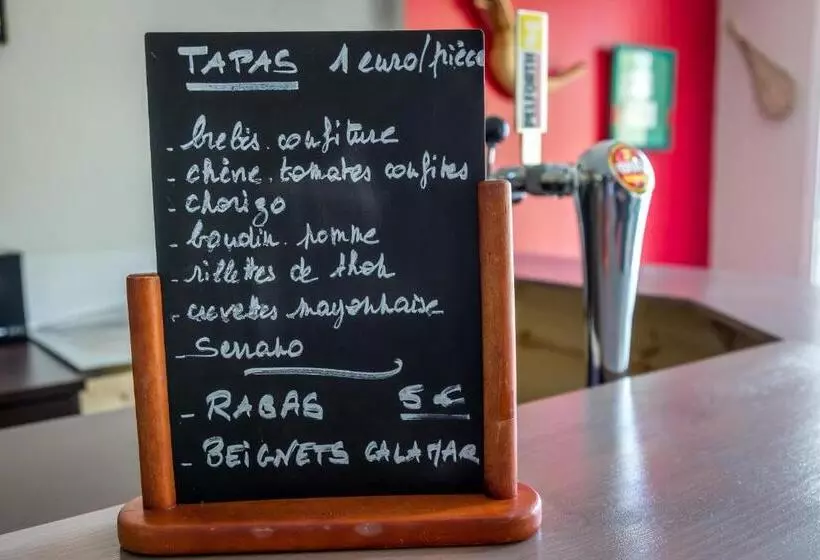 TAPAS 1 euro/pièce
- brebis. confiture
- chèvre. tomates confites
- chorizo
- boudin. pomme
- rillettes de thon
- crevettes mayonnaise
- Serrano
- RABAS 5 €
- BEIGNETS CALAMAR
PELFORTH